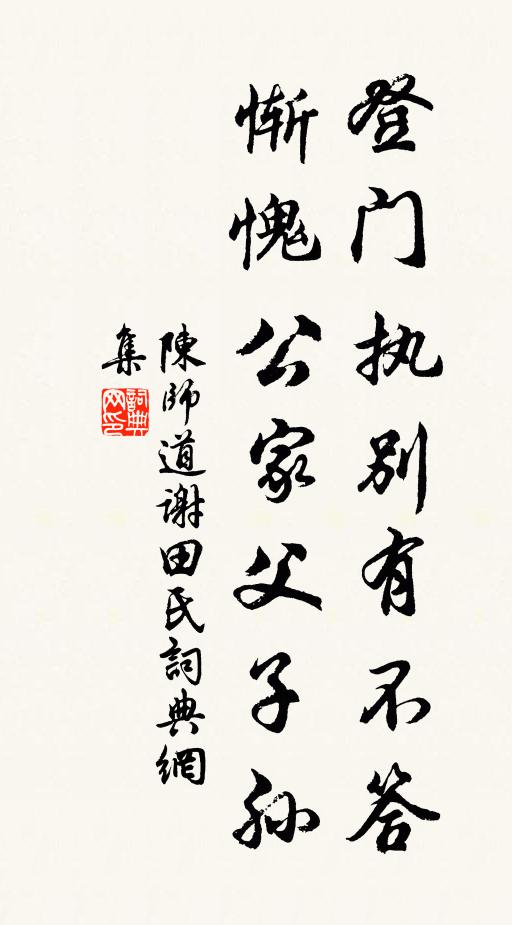 登门执别有不答
惭愧公家父子孙
陳師道谢田氏詞典網
集
詞典
网印